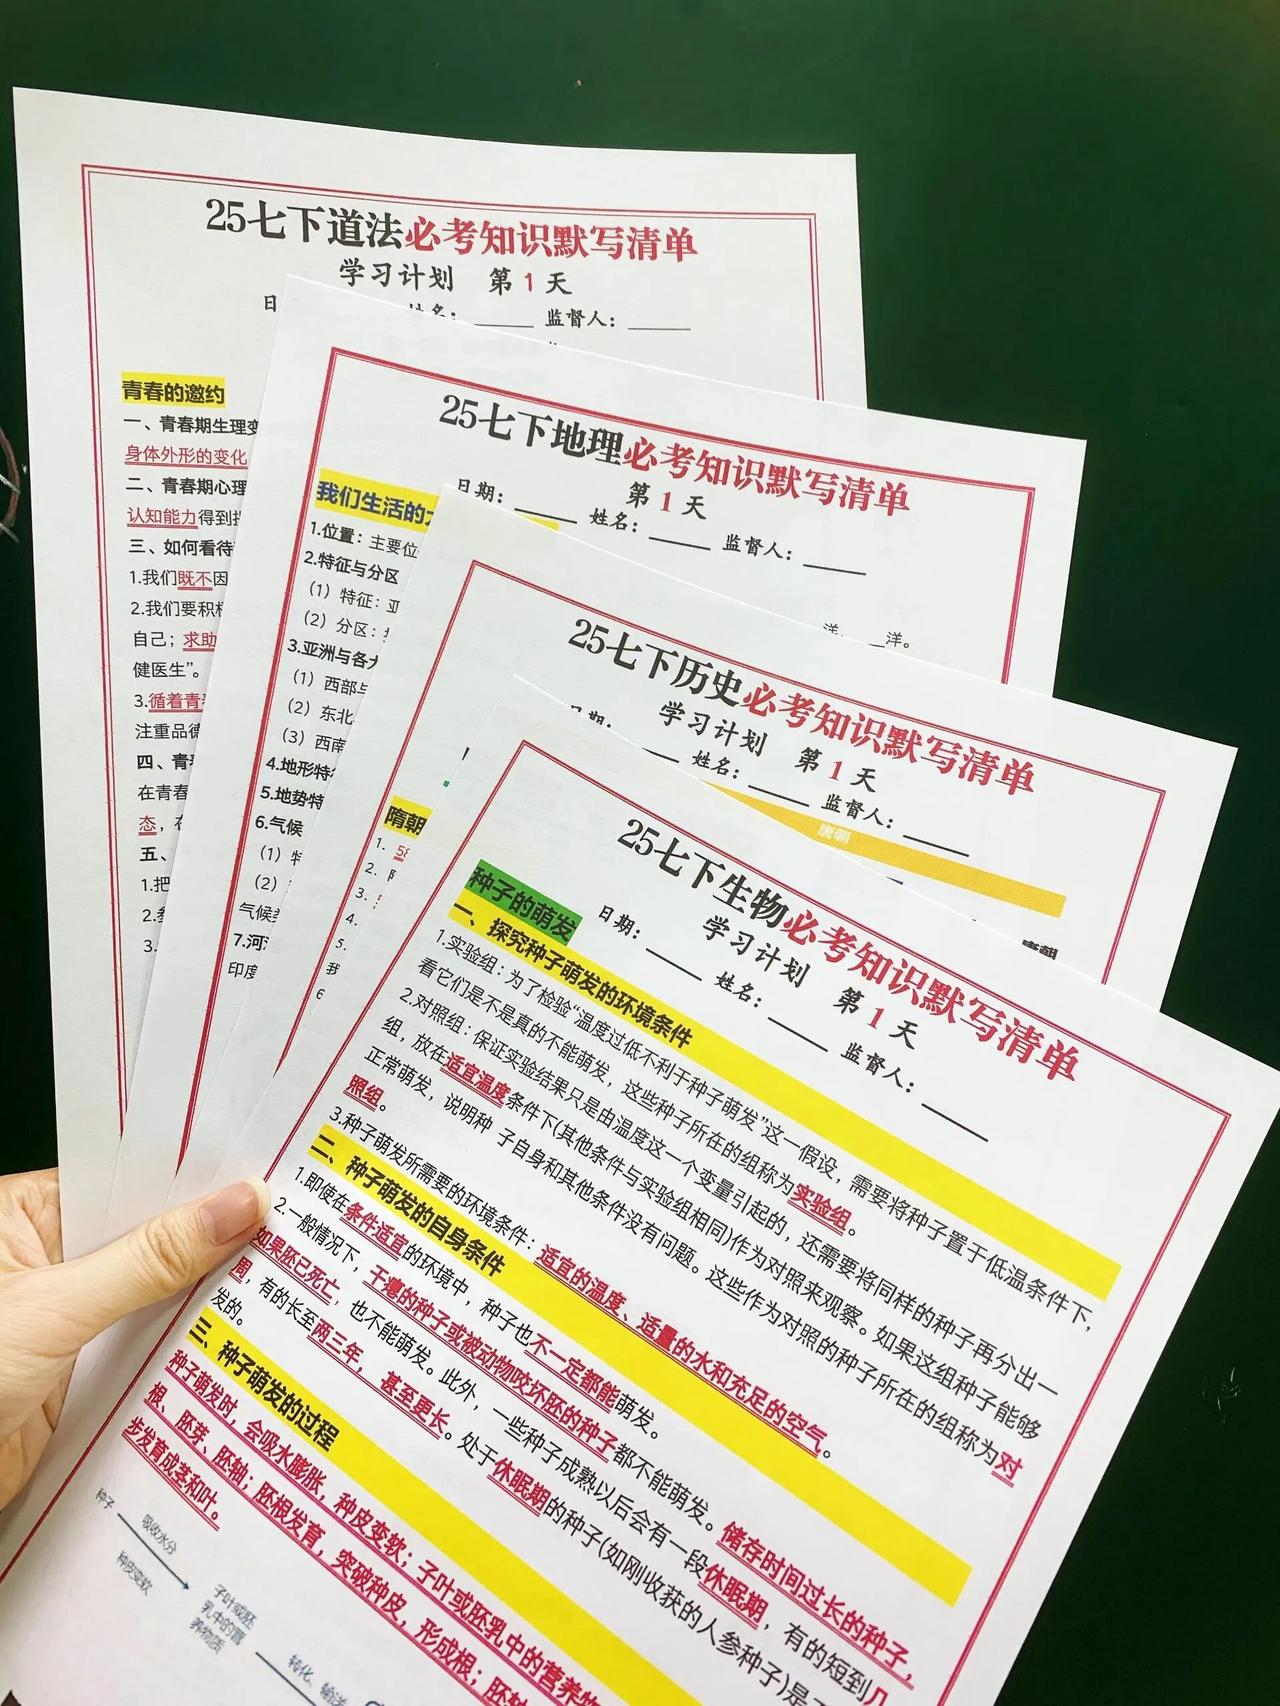 25七下道法必考知识默写清单
学习计划 第1天
日 姓名：____ 监督人：____
青春的邀约
一、青春期生理变
身体外形的变化
二、青春期心理
认知能力得到
三、如何看待
1.我们既不因
2.我们要积极
自己；求助
健医生”。
3.循着青春
注重品德
四、青春
在青春
态，
五、
1.把
2.
3.
25七下地理必考知识默写清单
第1天
日期：____ 姓名：____ 监督人：____
我们生活的大
1.位置：主要位
洋、__洋。
2.特征与分区
（1）特征：亚
（2）分区：
3.亚洲与各大
（1）西部与
（2）东北
（3）西南
4.地形特
5.地势特
6.气候
（1）特
（2）
气候类
7.河流
印度
25七下历史必考知识默写清单
学习计划 第1天
日期：____ 姓名：____ 监督人：____
唐朝
唐朝
隋朝
1. 58
2.
3.
4.
5.
我
6
25七下生物必考知识默写清单
学习计划 第1天
日期：____ 姓名：____ 监督人：____
种子的萌发
一、探究种子萌发的环境条件
1.实验组：为了检验“温度过低不利于种子萌发”这一假设，需要将种子置于低温条件下，
看它们是不是真的不能萌发，这些种子所在的组称为实验组。
2.对照组：保证实验结果只是由温度这一个变量引起的，还需要将同样的种子再分出一
组，放在适宜温度条件下(其他条件与实验组相同)作为对照来观察。如果这组种子能够
正常萌发，说明种 子自身和其他条件没有问题。这些作为对照的种子所在的组称为对
照组。
3.种子萌发所需要的环境条件：适宜的温度、适量的水和充足的空气。
二、种子萌发的自身条件
1.即使在条件适宜的环境中，种子也不一定都能萌发。
2.一般情况下，干瘪的种子或被动物咬坏胚的种子都不能萌发。储存时间过长的种子，
如果胚已死亡，也不能萌发。此外，一些种子成熟以后会有一段休眠期，有的短到几
周，有的长至两三年，甚至更长。处于休眠期的种子(如刚收获的人参种子)是
发的。
三、种子萌发的过程
种子萌发时，会吸水膨胀，种皮变软；子叶或胚乳中的营养物
根、胚芽、胚轴；胚根发育，突破种皮，形成根；胚轴
步发育成茎和叶。
种子
吸收水分
种皮变软
子叶或胚
乳中的营
养物质
转化、输送